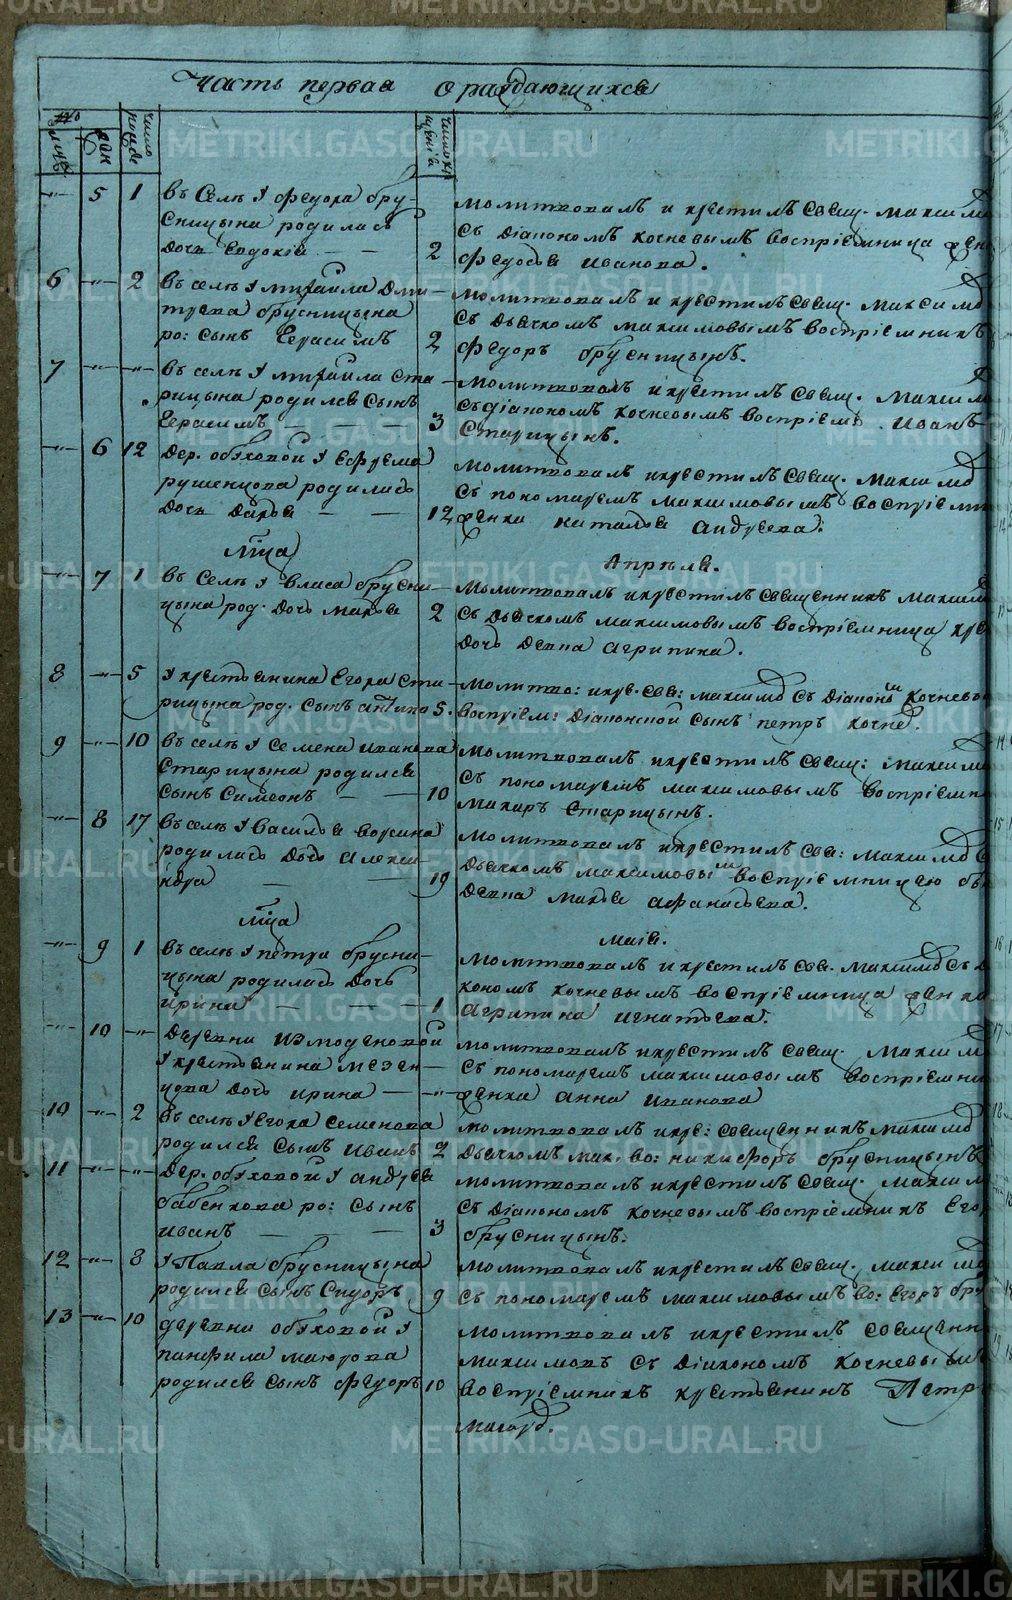 Часть первая о раждающихся
№
муж
жен
число рожде
число кре щенія
" 5 1 Въ Селѣ У Федора Бру-
сницына родилась
Дочь Евдокія — — 2
Молитвовалъ и крестилъ Свящ. Максимо
Съ Діакономъ Кочневымъ Воспріемница
Федосья Иванова.
6 " 2 Въ селѣ У Михайла Дми-
трева Брусницына
ро: сынъ Герасимъ 2
Молитвовалъ и крестилъ Свящ. Максимо
Съ Дьячкомъ Максимовымъ Воспріемникъ
Федоръ Брусницынъ.
7 " " Въ селѣ У Михайла Ста-
рицына родился Сынъ
Герасимъ — — — 3
Молитвовалъ и крестилъ Свящ. Максим
Съ діакономъ Кочневымъ Воспріем: Иванъ
Старицынъ.
" 6 12 Дер. Обуховой У Ефрема
рушенцова родилась
Дочь Дарья — — 12
Молитвовалъ и крестилъ Свящ. Максимо
Съ пономаремъ Максимовымъ Воспріемни
женка Наталья Андреева.
Мца Апрѣля.
" 7 1 Въ Селѣ У Власа Брусни-
цына род. Дочь Марья 2
Молитвовалъ и крестилъ Священникъ Максим
Съ Дьячкомъ Максимовымъ Воспріемница кре
Дочь Девка Агрипина.
8 " 5 У крестьянина Егора Ста-
рицына род. Сынъ Антипа 5.
Молитво: и кре. Свя: Максимо Съ Діакономъ Кочневы
Воспріем: Діаконской Сынъ Петръ Кочнев.
9 " 10 Въ селѣ У Семена Иванова
Старицына родился
Сынъ Симеонъ — — 10
Молитвовалъ и крестилъ Свящ: Максим
Съ пономаремъ Максимовымъ Воспріемн
Макаръ Старицынъ.
" 8 17 Въ селѣ У Василья
родилась Дочь Алекса-
ндра — — 19
Молитвовалъ и крестилъ Свя: Максимо
Дьячкомъ Максимовымъ Воспріемницею
Девка Марья Афанасьева.
Мца Маія.
" 9 1 Въ селѣ У Петра Брусни-
цына родилась Дочь
Ирина — 1
Молитвовалъ и крестилъ Свя. Максимо Съ Діа
кономъ Кочневымъ Воспріемница женка
Агрипина Игнатьева.
" 10 " Деревни Измоденовой
У крестьянина Мезен-
цова Дочь Ирина — "
Молитвовалъ и крестилъ Свящ. Максим
Съ пономаремъ Максимовымъ Воспріемни
женка Анна Иванова
10 " 2 Въ селѣ У Егора Семенова
родился Сынъ Иванъ 2
Молитвовалъ и кре: Священникъ Максимо
Дьячкомъ Мак. Во: Никифоръ Брусницынъ
11 " " Дер. Обуховой У Андрея
Бабенкова ро: Сынъ
Иванъ — — — 3
Молитвовалъ и крестилъ Свящ. Максим
Съ Діакономъ Кочневымъ Воспріемникъ Егор
Брусницынъ.
12 " 8 У Павла Брусницына
родился Сынъ Сидоръ 9
Молитвовалъ и крестилъ Свящ. Максимо
Съ пономаремъ Максимовымъ Во: Егоръ Бру
13 " 10 деревни Обуховой У
Панфила Маюрова
родился Сынъ Федоръ 10
Молитвовалъ и крестилъ Священн
Максимовъ Съ Діакономъ Кочневымъ
Воспріемникъ крестьянинъ Петръ
Маюро.
METRIKI.GASO-URAL.RU